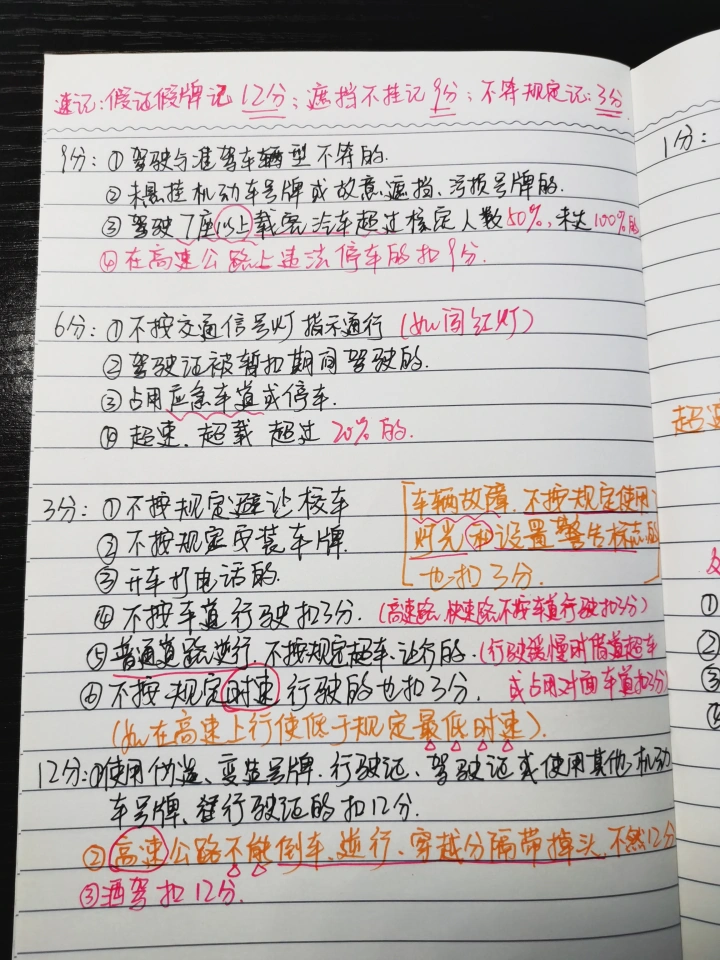 速记:假证假牌记12分;遮挡不挂记9分;不符规定记:3分
9分:①驾驶与准驾车辆型不符的.
②未悬挂机动车号牌或故意遮挡、污损号牌的.
③驾驶7座以上载客汽车超过核定人数50%,未达100%的
④在高速公路上违法停车的扣9分.
6分:①不按交通信号灯指示通行(如闯红灯)
②驾驶证被暂扣期间驾驶的.
③占用应急车道或停车.
④超速、超载 超过20%的.
3分:①不按规定避让校车
②不按规定安装车牌.
③开车打电话的.
[车辆故障.不按规定使用
灯光和设置警告标志的
也扣3分.]
④不按车道行驶扣3分.(高速路、快速路不按车道行驶扣3分)
⑤普通道路逆行,不按规定超车、让行的.(行驶缓慢时借道超车
或占用对面车道扣3分)
⑥不按规定时速行驶的也扣3分.
(如在高速上行使低于规定最低时速).
12分:①使用伪造、变造号牌.行驶证、驾驶证或使用其他机动
车号牌、行驶证的扣12分.
②高速公路不能倒车、逆行、穿越分隔带掉头 不然12分
③酒驾扣12分.
1分:
超速
①
②
③